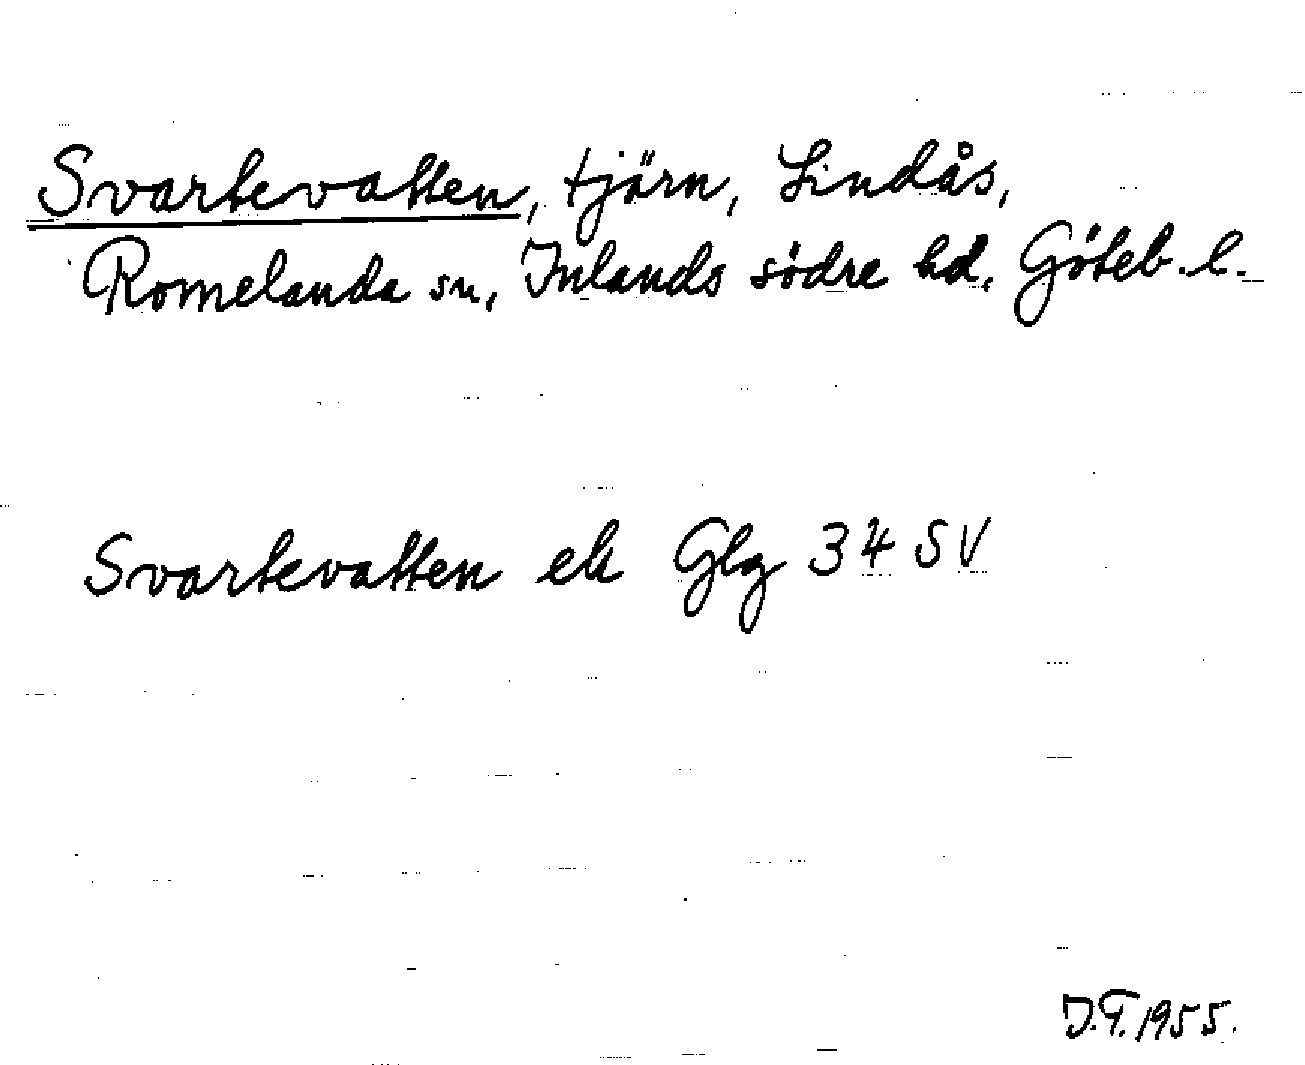 Svartevatten, tjärn, Lindås,
Romelanda sn, Inlands södre hd, Göteb. l.
Svartevatten ek Glg 34 SV
D.T. 1955.